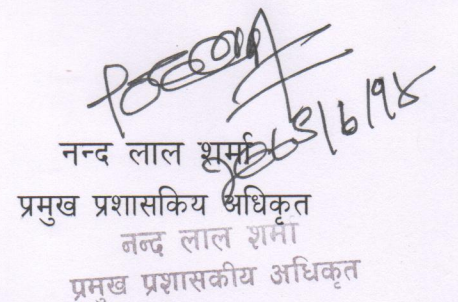 नन्द लाल शर्मा
प्रमुख प्रशासकिय अधिकृत
नन्द लाल शर्मा
प्रमुख प्रशासकीय अधिकृत